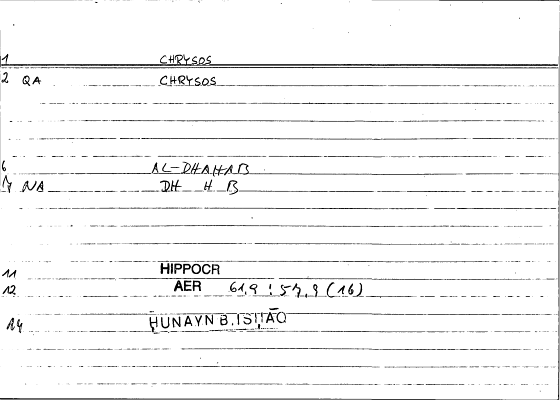 1 CHRYSOS
2 QA CHRYSOS
6 AL-DHAHAB
7 NA DH H B
11 HIPPOCR
12 AER 61,9 : 57,9 (16)
14 ḤUNAYN B. ISḤĀQ